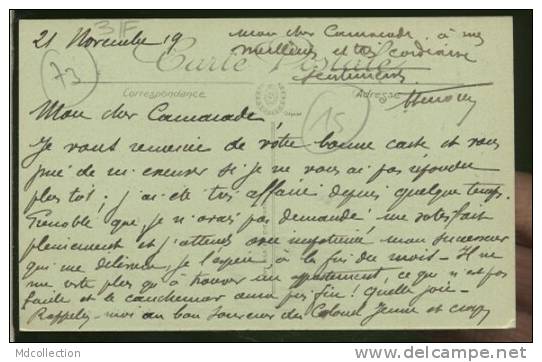 21 Novembre 19
31F
73
15
Carte Postale
Correspondance
Adresse
Mon cher Camarade,
Je vous remercie de votre bonne carte et vous
prie de m'excuser si je ne vous ai pas répondu
plus tôt, j'ai été très affairé depuis quelque temps.
Grenoble que je n'avais pas demandé me satisfait
pleinement et j'attends avec impatience mon successeur
qui me délivrera, je l'espère à la fin du mois - Il ne
me reste plus qu'à trouver un appartement, ce qui n'est pas
facile et le cauchemar aura pris fin ! Quelle joie -
Rappelez-moi au bon souvenir du Colonel
mon cher Camarade, à mes
meilleurs et très cordiaux
sentiments
MDCollection
www.delcampe.net